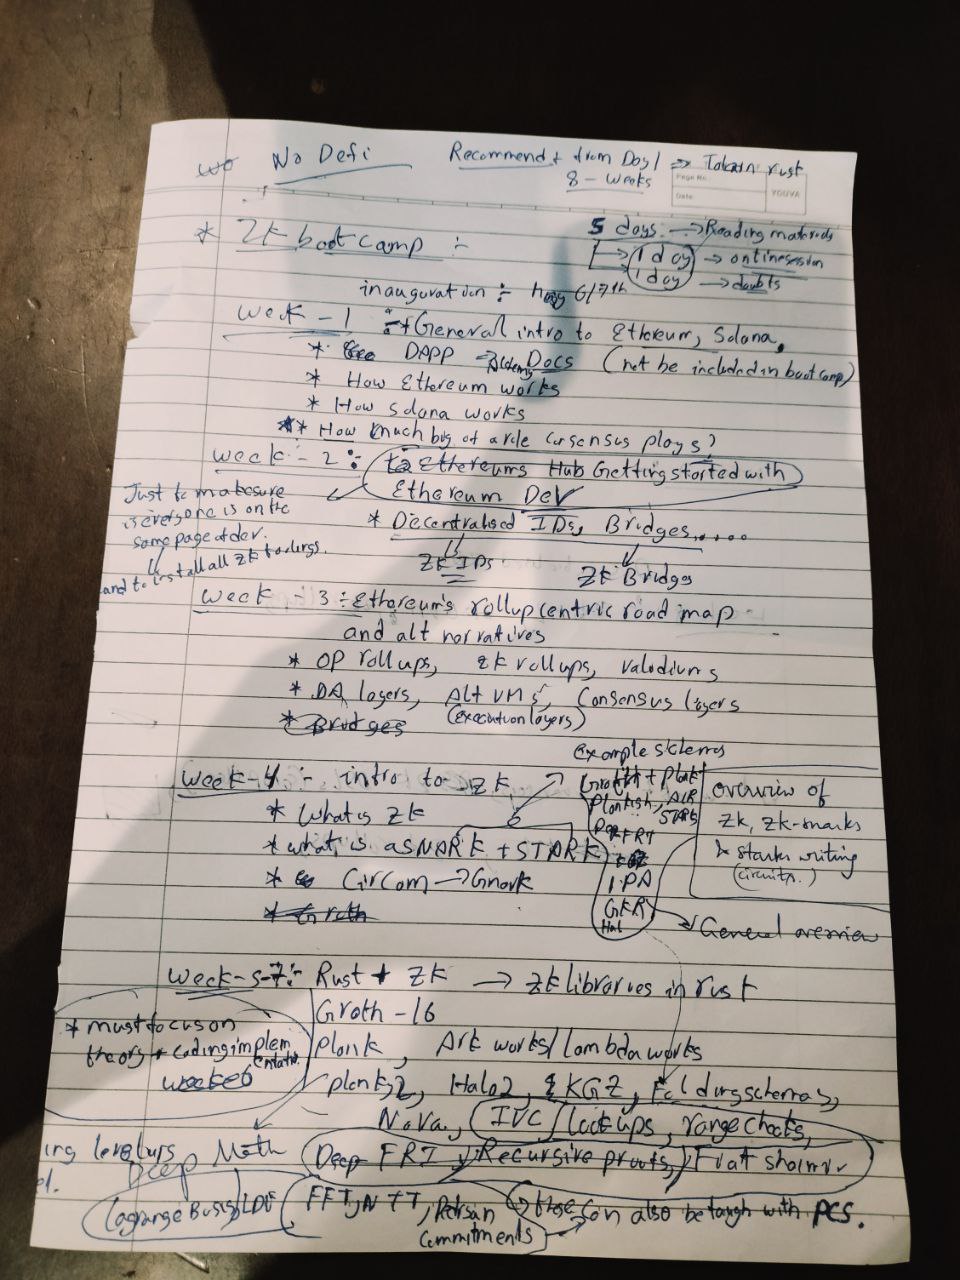 No Defi
Recommend from Day 1 => To learn rust
8 - weeks
Page No.
Date:
YOUVA
* Zk bootcamp :-
5 days: -> Reading materials
1 day -> online session
1 day -> doubts
inauguration :- 6/7th
week - 1 :- General intro to Ethereum, Solana.
* DAPP -> Alchemy Docs (not be included in bootcamp)
* How Ethereum works
* How solana works
** How much big of a role consensus plays?
week - 2 :- Ethereums Hub Getting started with
Ethereum Dev
Just to make sure
is everyone is on the
same page of dev.
and to install all zk toolings.
* Decentralised IDs, Bridges.....
ZK IDs
ZK Bridges
week - 3 :- Ethereum's rollup centric road map
and alt narratives
* OP rollups, zk rollups, validiums
* DA layers, Alt VMs, Consensus layers
(execution layers)
* Bridges
Example schemes
week-4 :- intro to ZK
* What is ZK
* what is a SNARK + STARK
* Circom -> Gnark
* Groth
Plonkish, AIR
STARKs
FRI
IPA
GKR
overview of
zk, zk-snarks
& starks writing
(circuits.)
-> General overview
week-5-7:- Rust + ZK -> zk libraries in rust
* must focus on
theory + coding implem
entation
Groth -16
Plonk, Ark works/Lambda works
plonky2, Halo2, KGZ, Folding schemes,
Nova, IVC, Lookups, range checks,
Deep Math
Deep FRI, Recursive proofs, Fiat shamir
ing
Lagrange Basis, LDE
FFT, NTT, Pedersan
commitments
-> these can also be taugh with PCS.